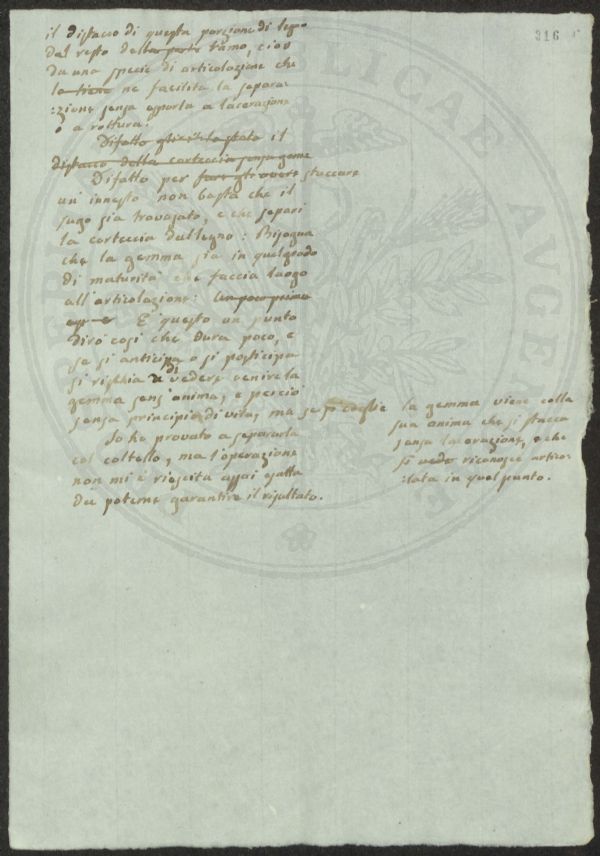 316
il distacco di questa porzione di legno
dal resto della parte ramo, cioè
da una specie di articolazione che
la tiene ne facilita la separa-
:zione senza opporla a lacerazione
o a rottura.
Difatto gli si è lo stato il
distacco della corteccia senza gemme
Difatto per fare gli staccare
un'innesto non basta che il
sugo sia travasato, e che separi
la corteccia dal legno: Bisogna
che la gemma sia in quel grado
di maturità che faccia luogo
all'articolazione: un poco prima
E questo un punto
dirò così che dura poco, e
se si anticipa o si posticipa
si rischia di vedere venire la
gemma senz'anima, e perciò
senza principio di vita, ma se si coglie
la gemma viene colla
sua anima che si stacca
senza lacerazione, e che
si vede riconosce artico-
:lata in quel punto.
Io ho provato a separarla
col coltello, ma l'operazione
non mi è riescita assai esatta
da poterne garantire il risultato.